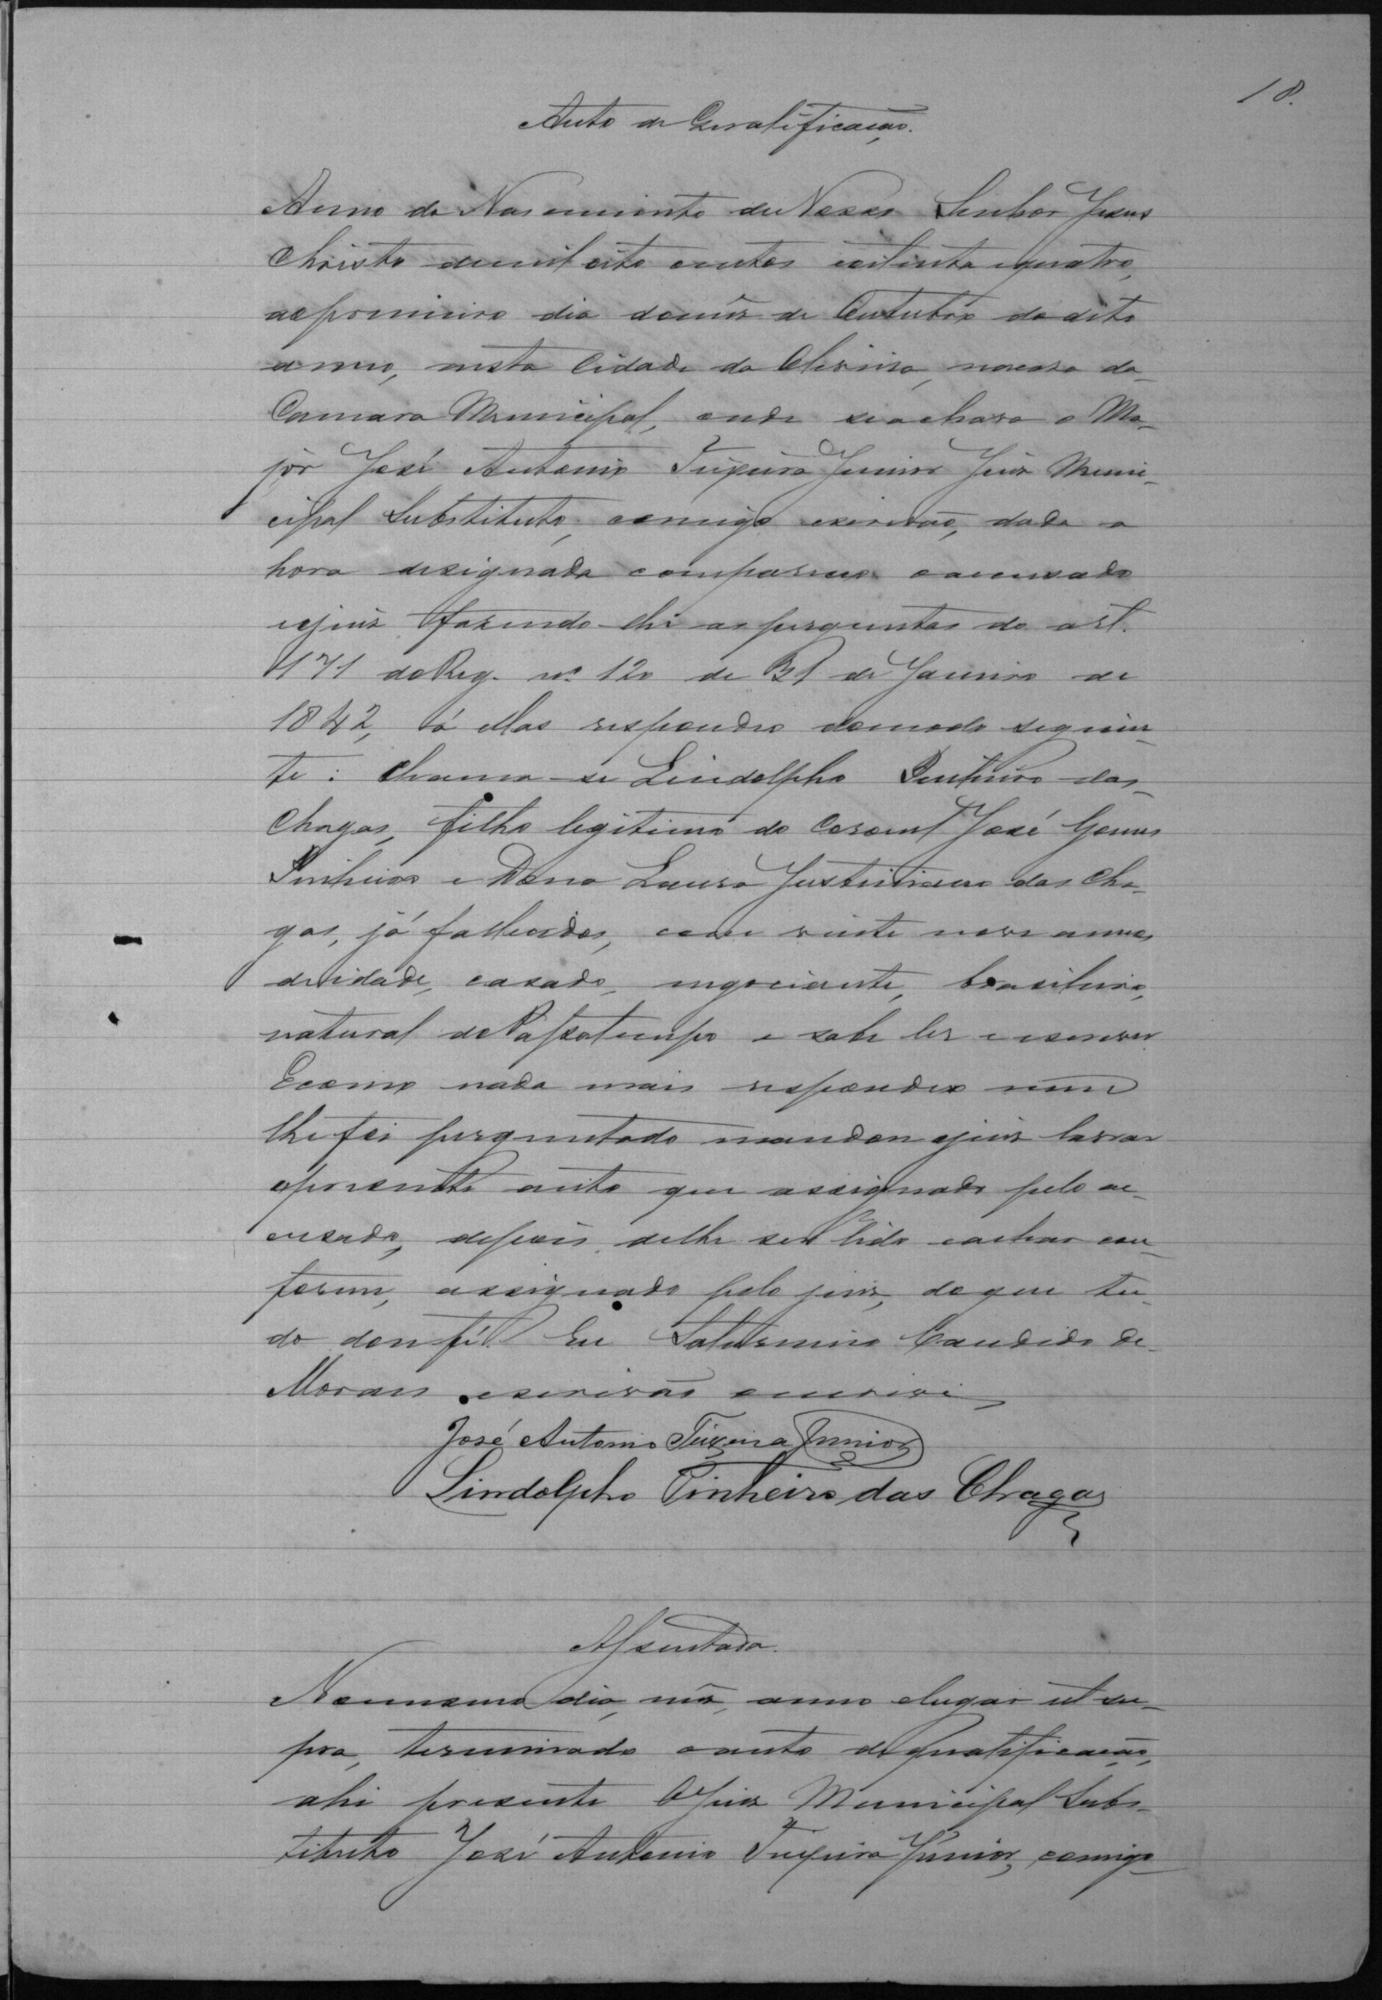 18.
Auto de Qualificação.
Anno do Nascimento de Nosso Senhor Jesus
Christo de mil oito centos oitenta e quatro,
ao primeiro dia do mês de Outubro do dito
anno, nesta Cidade da Oliveira, na casa da
Camara Municipal, onde se achava o Ma-
jor José Antonio Teixeira Junior Juiz Muni-
cipal Substituto, comigo escrivão, dada a
hora designada compareceo o accusado
e o juiz fazendo-lhe as perguntas do art.
171 do Reg. nº 120 de 31 de Janeiro de
1842, á ellas respondeo do modo seguin-
te: chama-se Lindolpho Pinheiro das
Chagas, filho legitimo do Coronel José Gomes
Pinheiro e Dona Laura Justiniana das Cha-
gas, já fallecidos, com vinte nove annos
de idade, casado, negociante, brasileiro,
natural de Passatempo e sabe ler e escrever
E como nada mais respondeo nem
lhe foi perguntado mandou o juiz lavrar
o presente auto que assignado pelo ac-
cusado, depois de lhe ser lido e achar con-
forme, assignado pelo juiz, do que tu-
do dou fé. Eu Saturnino Candido de
Moraes escrivão escrevi
José Antonio Teixeira Junior
Lindolpho Pinheiro das Chagas
Assentada.
No mesmo dia, mês, anno e lugar ut su-
pra, terminado o auto de qualificação,
ahi presente o Juiz Municipal Subs-
tituto José Antonio Teixeira Junior, comigo